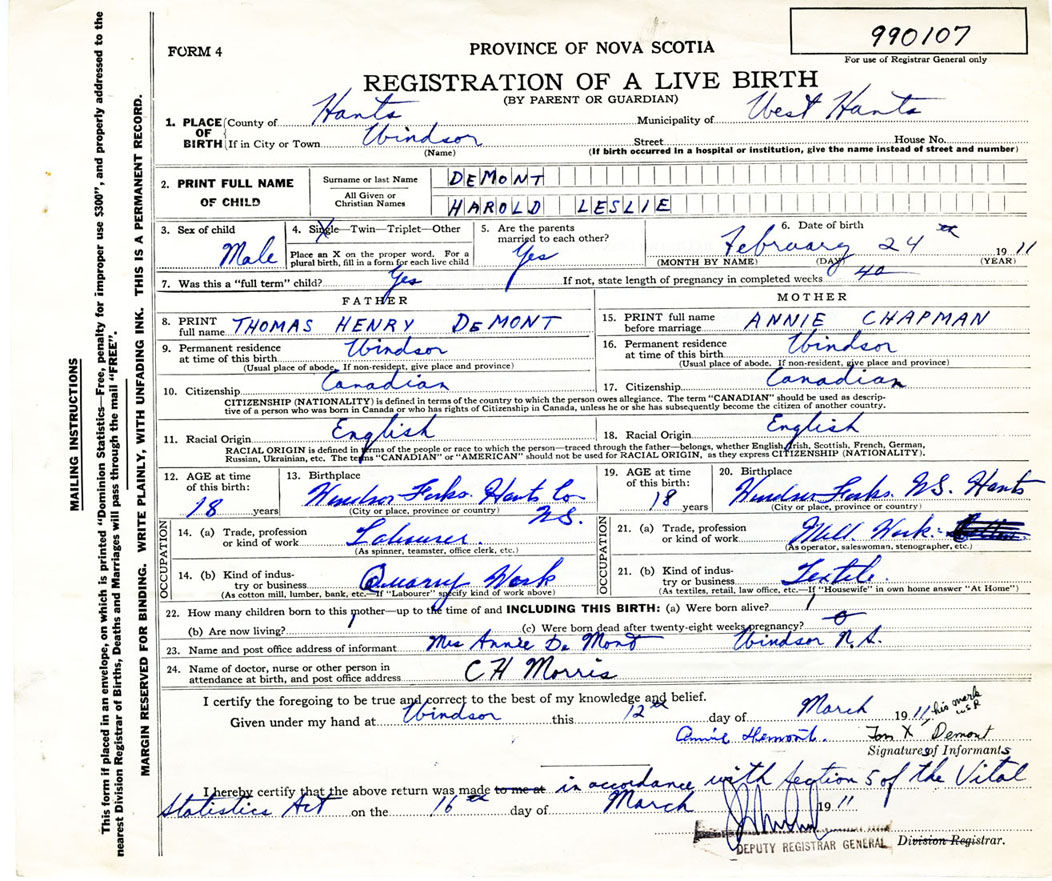 990107
FORM 4
PROVINCE OF NOVA SCOTIA
For use of Registrar General only
REGISTRATION OF A LIVE BIRTH
(BY PARENT OR GUARDIAN)
1. PLACE OF BIRTH County of Hants Municipality of West Hants
If in City or Town Windsor Street House No.
(Name) (If birth occurred in a hospital or institution, give the name instead of street and number)
2. PRINT FULL NAME OF CHILD Surname or last Name DEMONT
All Given or Christian Names HAROLD LESLIE
3. Sex of child Male
4. Single—Twin—Triplet—Other X
Place an X on the proper word. For a plural birth, fill in a form for each live child
5. Are the parents married to each other? Yes
6. Date of birth February 24th 1911
(MONTH BY NAME) (DAY) (YEAR)
7. Was this a "full term" child? Yes If not, state length of pregnancy in completed weeks 40
FATHER
8. PRINT full name THOMAS HENRY DEMONT
9. Permanent residence at time of this birth Windsor
(Usual place of abode. If non-resident, give place and province)
10. Citizenship Canadian
MOTHER
15. PRINT full name before marriage ANNIE CHAPMAN
16. Permanent residence at time of this birth Windsor
(Usual place of abode. If non-resident, give place and province)
17. Citizenship Canadian
CITIZENSHIP (NATIONALITY) is defined in terms of the country to which the person owes allegiance. The term "CANADIAN" should be used as descrip-
tive of a person who was born in Canada or who has rights of Citizenship in Canada, unless he or she has subsequently become the citizen of another country.
11. Racial Origin English
18. Racial Origin English
RACIAL ORIGIN is defined in terms of the people or race to which the person—traced through the father—belongs, whether English, Irish, Scottish, French, German,
Russian, Ukrainian, etc. The terms "CANADIAN" or "AMERICAN" should not be used for RACIAL ORIGIN, as they express CITIZENSHIP (NATIONALITY).
12. AGE at time of this birth: 18 years
13. Birthplace Windsor Forks. Hants Co N.S.
(City or place, province or country)
19. AGE at time of this birth: 18 years
20. Birthplace Windsor Forks. N.S. Hants
(City or place, province or country)
OCCUPATION
14. (a) Trade, profession or kind of work Labourer.
(As spinner, teamster, office clerk, etc.)
14. (b) Kind of indus-
try or business Quarry Work
(As cotton mill, lumber, bank, etc.—If "Labourer" specify kind of work above)
OCCUPATION
21. (a) Trade, profession or kind of work Mill Work.
(As operator, saleswoman, stenographer, etc.)
21. (b) Kind of indus-
try or business Textile.
(As textiles, retail, law office, etc.—If "Housewife" in own home answer "At Home")
22. How many children born to this mother—up to the time of and INCLUDING THIS BIRTH: (a) Were born alive? 1
(b) Are now living? 1 (c) Were born dead after twenty-eight weeks pregnancy? 0
23. Name and post office address of informant Mrs Annie De Mont Windsor N.S.
24. Name of doctor, nurse or other person in attendance at birth, and post office address C H Morris
I certify the foregoing to be true and correct to the best of my knowledge and belief.
Given under my hand at Windsor this 12th day of March 1911
his mark
Annie Demont. Tom X Demont
Signatures of Informants
I hereby certify that the above return was made to me at in accordance with Section 5 of the Vital
Statistics Act on the 16th day of March 1911
DEPUTY REGISTRAR GENERAL Division Registrar.
MAILING INSTRUCTIONS
This form if placed in an envelope, on which is printed "Dominion Statistics—Free, penalty for improper use $300", and properly addressed to the
nearest Division Registrar of Births, Deaths and Marriages will pass through the mail "FREE".
MARGIN RESERVED FOR BINDING. WRITE PLAINLY, WITH UNFADING INK. THIS IS A PERMANENT RECORD.